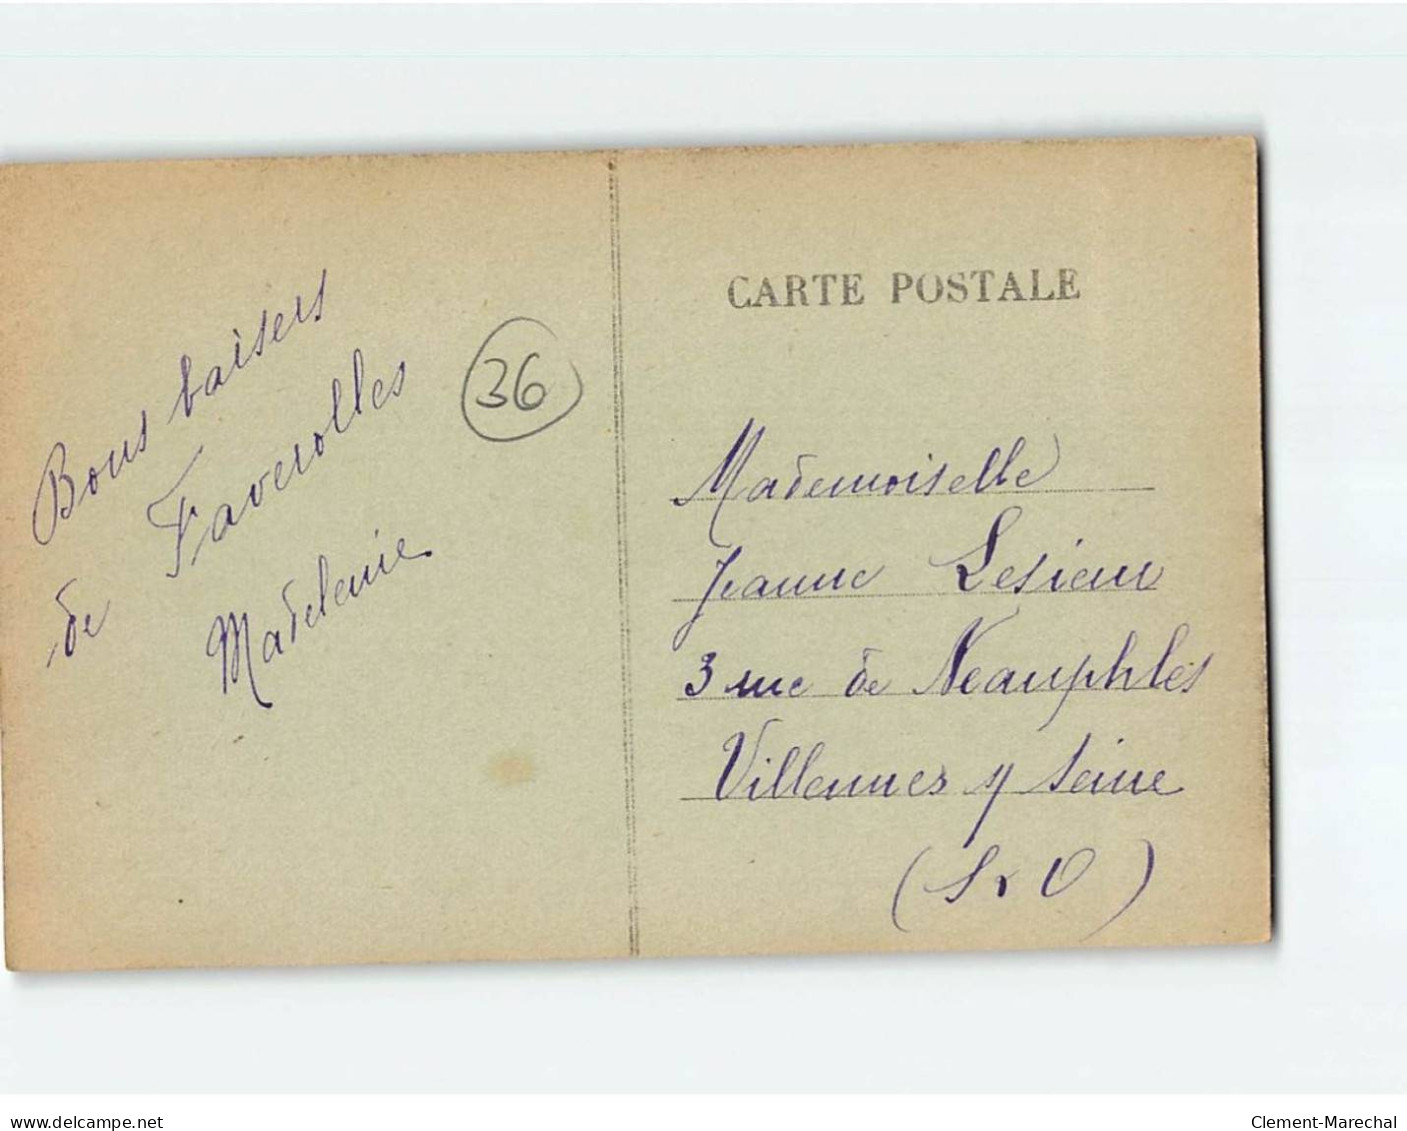 Bons baisers
de Faverolles
Madeleine
36
CARTE POSTALE
Mademoiselle
Jeanne Lesieur
3 rue de Neauphles
Villennes s/ Seine
(S & O)
www.delcampe.net
Clement-Marechal